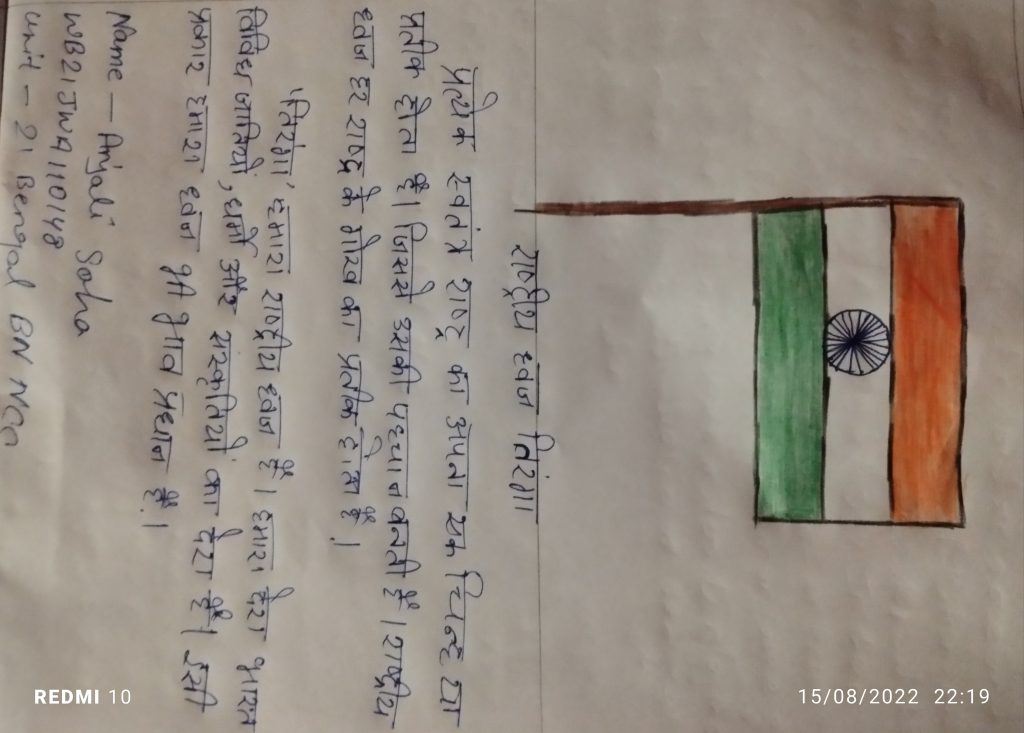 राष्ट्रीय ध्वज तिरंगा
प्रत्येक स्वतंत्र राष्ट्र का अपना एक चिन्ह या
प्रतीक होता है। जिससे उसकी पहचान बनती है। राष्ट्रीय
ध्वज हर राष्ट्र के गौरव का प्रतीक होता है।
'तिरंगा' हमारा राष्ट्रीय ध्वज है। हमारा देश भारत
विविध जातियों, धर्मों और संस्कृतियों का देश है। इसी
प्रकार हमारा ध्वज भी भाव प्रधान है।
Name - Anjali Saha
WB21JWA110148
Unit - 21 Bengal BN NCC
REDMI 10
15/08/2022 22:19